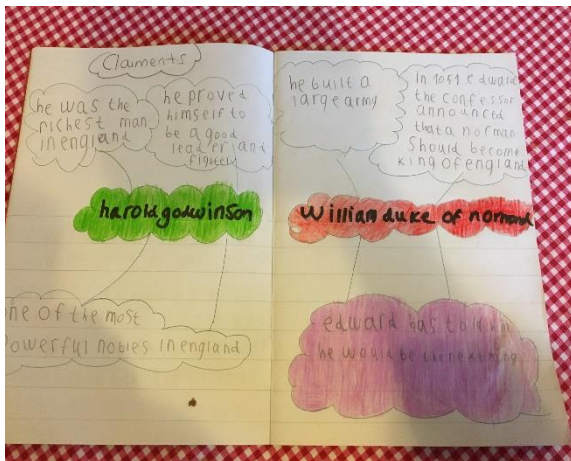 Claments
he was the
richest man
in england
he proved
himself to
be a good
leader and
fighter
harold godwinson
one of the most
powerful nobles in england
he built a
large army
In 1051 edward
the confessor
announced
that a norman
should become
king of england
William duke of normand
edward has told him
he would be the next king